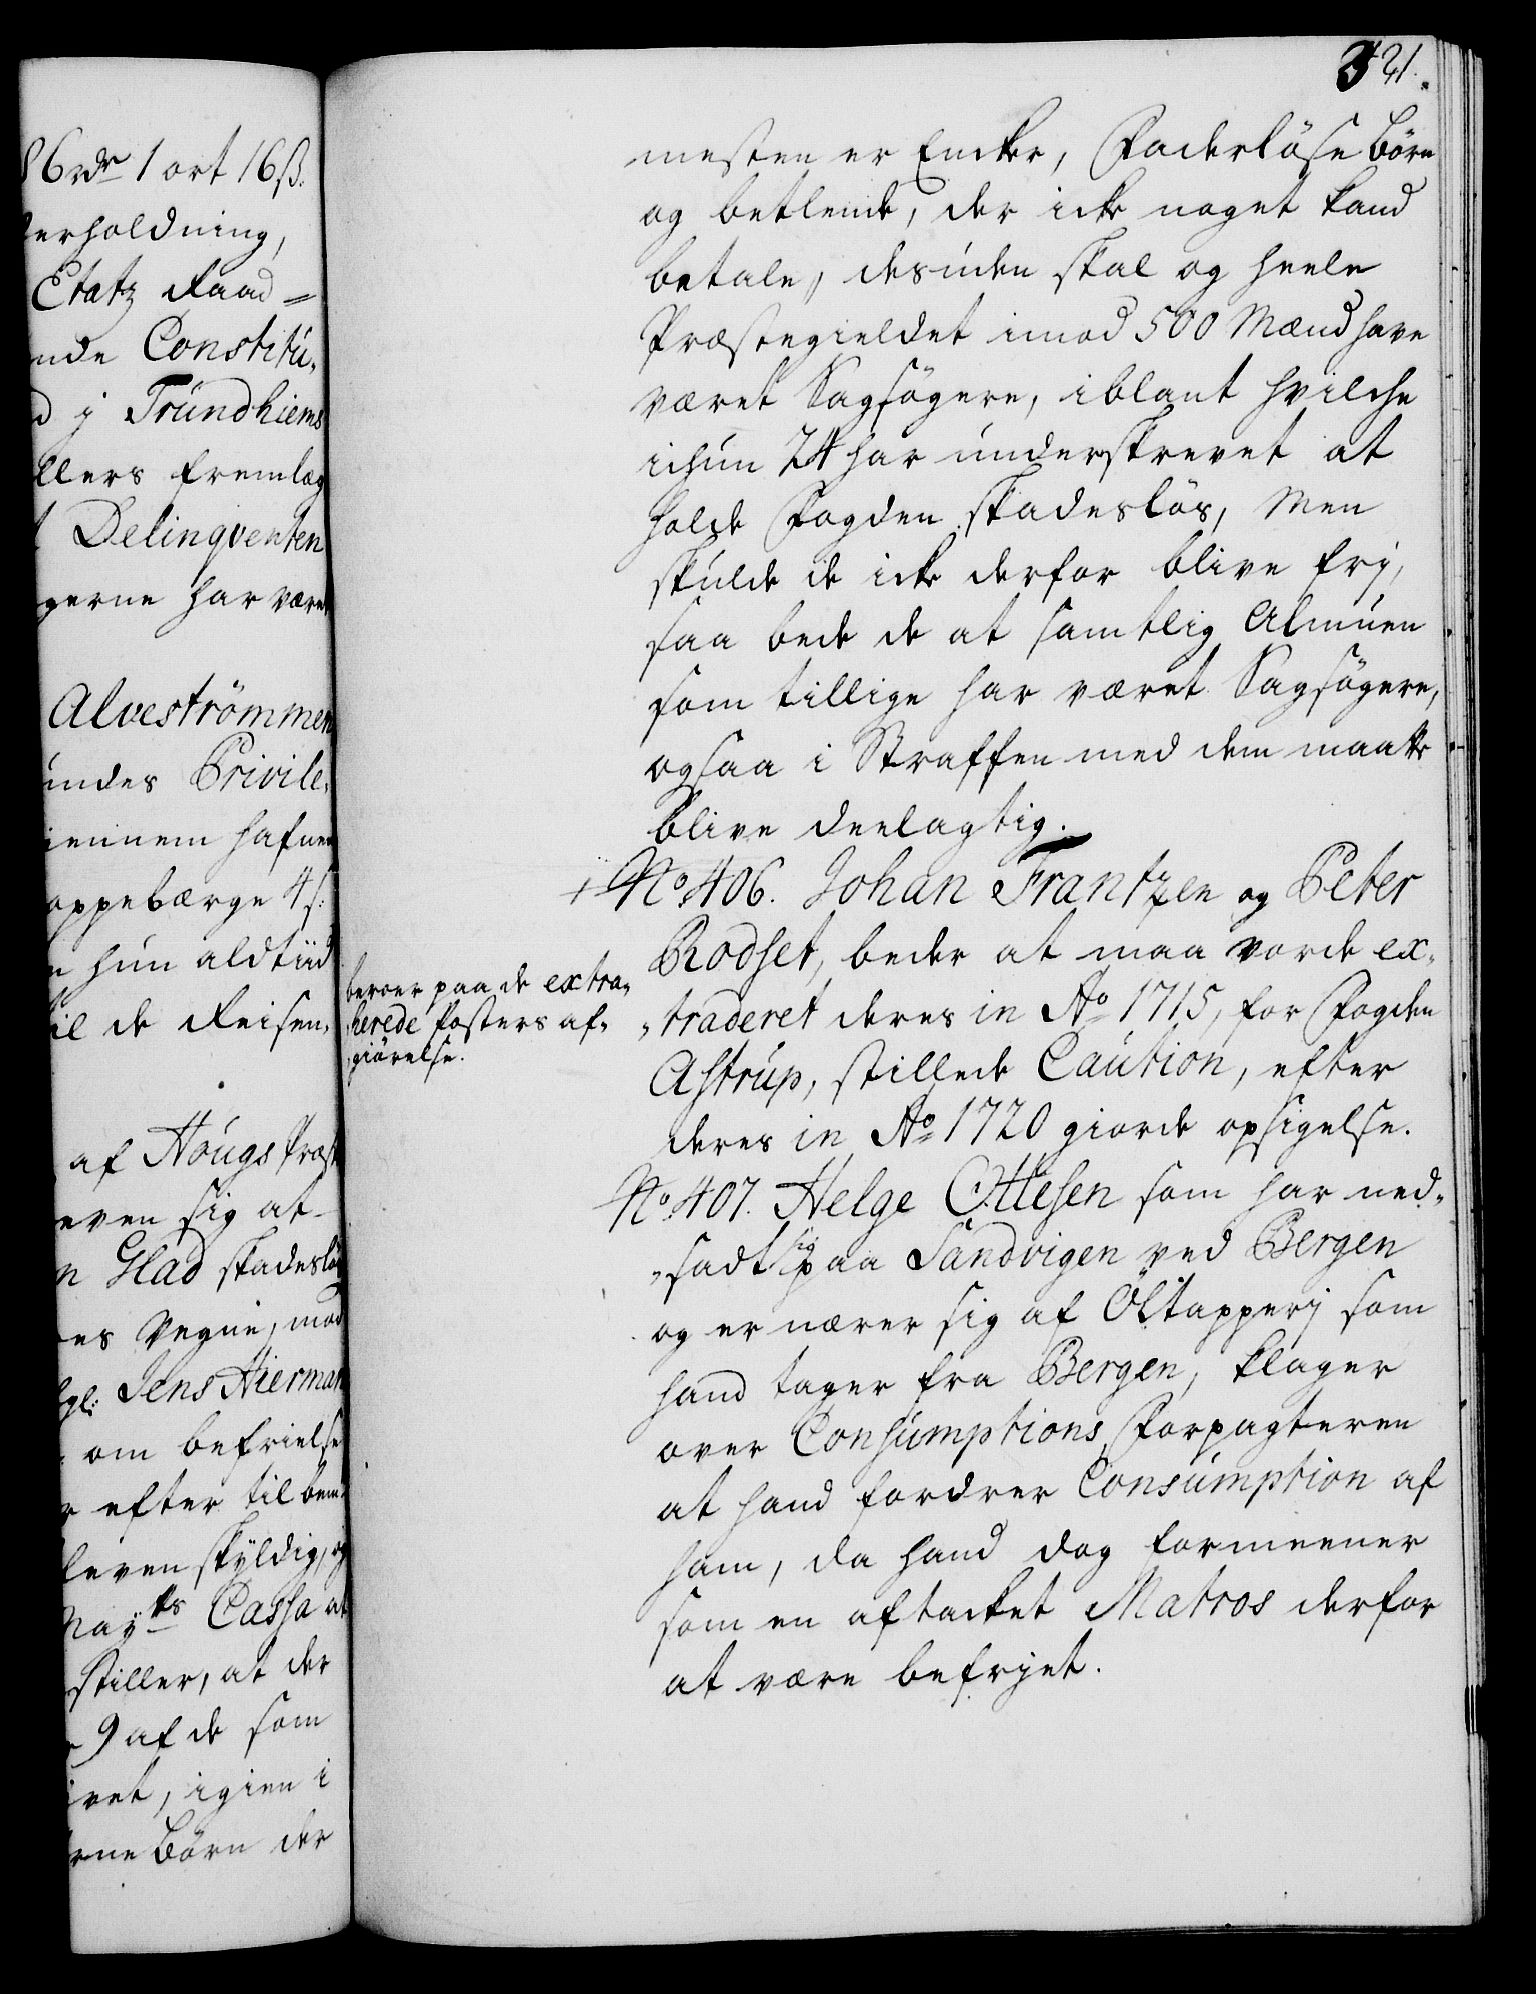 86 rdr 1 ort 16 ß.
erholdning,
Etatz Raad=
nde Constitu-
d j Trundhiems
llers fremlæg
Delinqventen
gerne har være
Alveströmmen
undes Privile-
iennem hafnen
oppebærge 4 s:
hun aldtiid
il de Reisen-
af Hougs Præst
even sig at
n Glad skadeslös
es Vegne, mod
gl: Jens Hierman
om befrielse
efter til bem
leven skyldig, og
Maytts Cassa at
stiller, at der
9 af de som
ret, igien i
rne Börn der
321.
mesten er Encker, Faderlöse Börn
og betlende, der icke noget kand
betale, desuden skal og heele
Præstegieldet imod 500 Mænd have
været Sagsögere, iblant hvilche
ichun 24 har underskrevet at
holde Fogden skadeslös, Men
skulde de icke derfor blive frj,
saa bede de at samtlig Almuen
som tillige har været Sagsögere,
ogsaa i Straffen med dem maatte
blive deelagtig.
+ No. 406. Johan Frantzen og Peter
Rodset, beder at maa vorde ex-
-traderet deres in Ao 1715, for Fogden
Astrup, stillede Caution, efter
deres in Ao 1720 giorde opsigelse.
beroer paa de extra-
-herede Posters af-
-giörelse.
No. 407. Helge Ottesen som har ned-
-sadt sig paa Sandvigen ved Bergen
og er nærer sig af Öltapperj som
hand tager fra Bergen, klager
over Consumptions Forpagteren
at hand fordrer Consumption af
ham, da hand dog formeener
som en aftacket Matros derfor
at være befrjet.